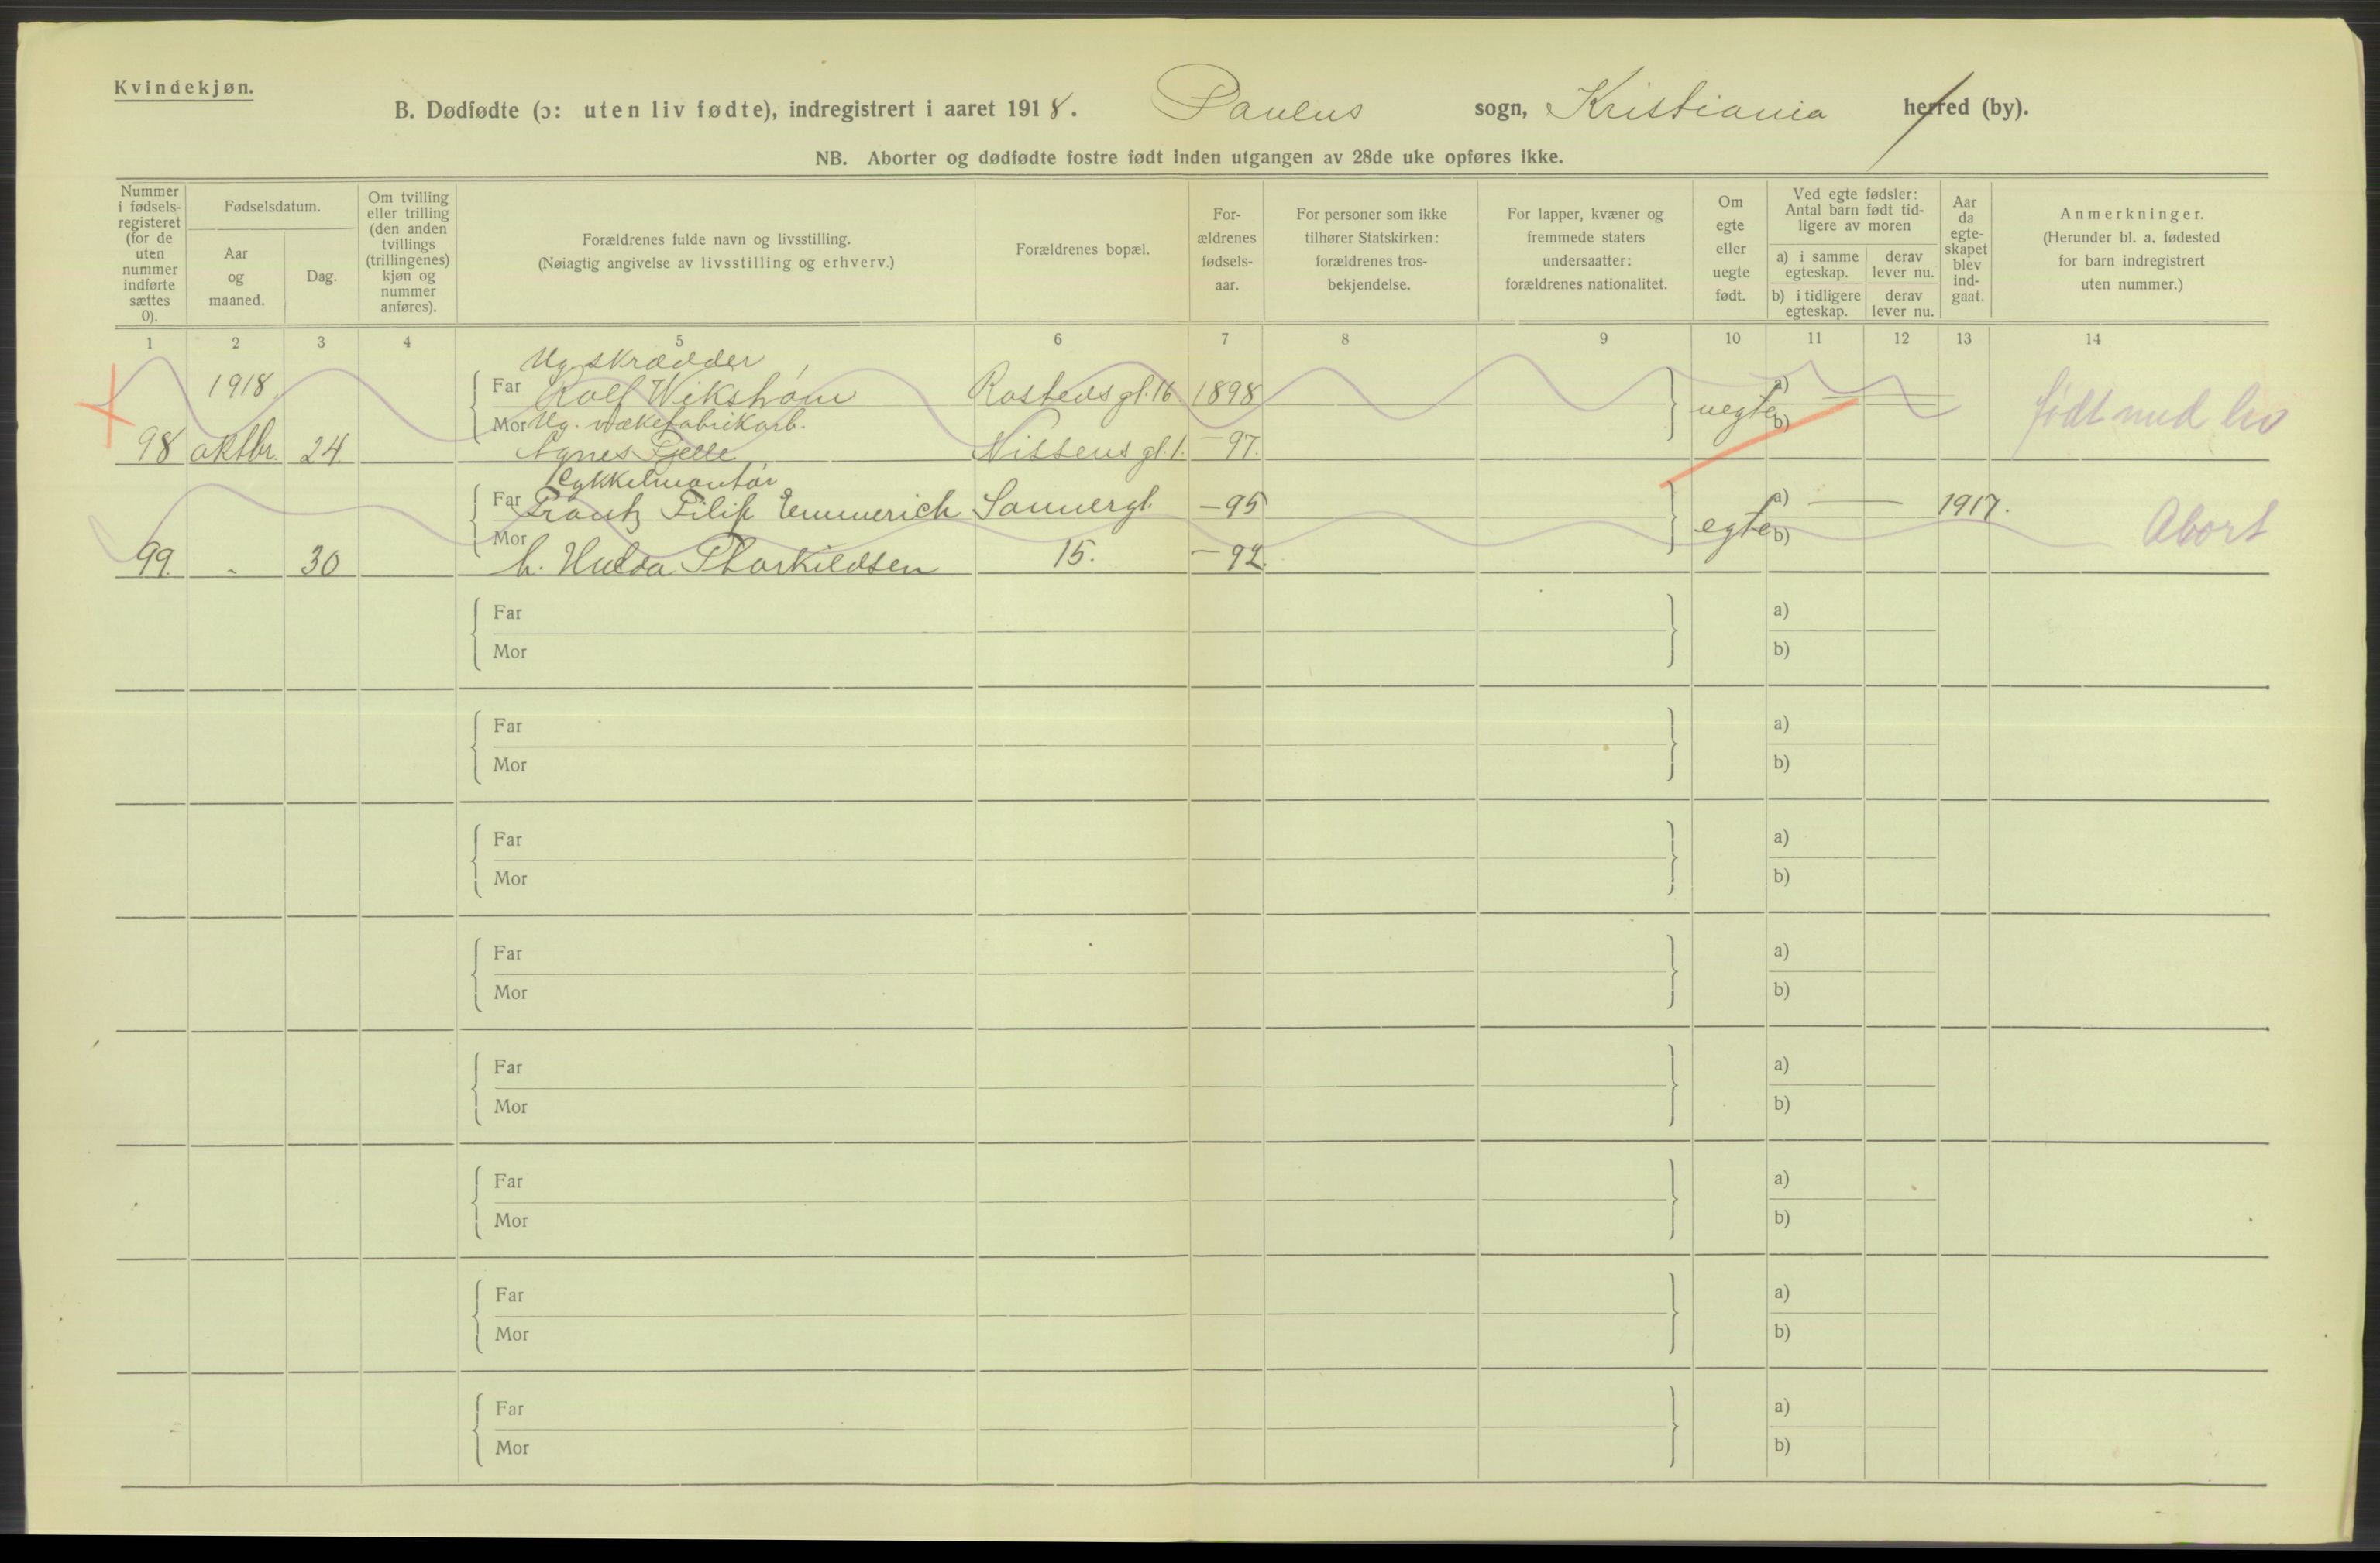 Kvindekjøn.
B. Dødfødte (ɔ: uten liv fødte), indregistrert i aaret 1918. Paulus sogn, Kristiania herred (by).
NB. Aborter og dødfødte fostre født inden utgangen av 28de uke opføres ikke.
Nummer i fødsels-registeret (for de uten nummer indførte sættes 0).
Fødselsdatum.
Aar og maaned.
Dag.
Om tvilling eller trilling (den anden tvillings (trillingenes) kjøn og nummer anføres).
Forældrenes fulde navn og livsstilling.
(Nøiagtig angivelse av livsstilling og erhverv.)
Forældrenes bopæl.
For-ældrenes fødsels-aar.
For personer som ikke tilhører Statskirken: forældrenes tros-bekjendelse.
For lapper, kvæner og fremmede staters undersaatter: forældrenes nationalitet.
Om egte eller uegte født.
Ved egte fødsler: Antal barn født tid-ligere av moren
a) i samme egteskap.
derav lever nu.
b) i tidligere egteskap.
derav lever nu.
Aar da egte-skapet blev ind-gaat.
Anmerkninger.
(Herunder bl. a. fødested for barn indregistrert uten nummer.)
1 2 3 4 5 6 7 8 9 10 11 12 13 14
Ug. skrædder
1918. Far Rolf Wikstrøm Rosteds gt. 16 1898 a) —
Mor Ug. vækefabrikarb. uegte b) født med liv
98 oktbr. 24. Agnes Fjelle Nissens gt. 1. —97.
Cykkelmontør
Far Frantz Filip Emmerich Sannergt. —95 a) — 1917.
Mor egte b) Abort
99. " 30 h. Hulda Thorkildsen 15. —92.
Far a)
Mor b)
Far a)
Mor b)
Far a)
Mor b)
Far a)
Mor b)
Far a)
Mor b)
Far a)
Mor b)
Far a)
Mor b)
Far a)
Mor b)